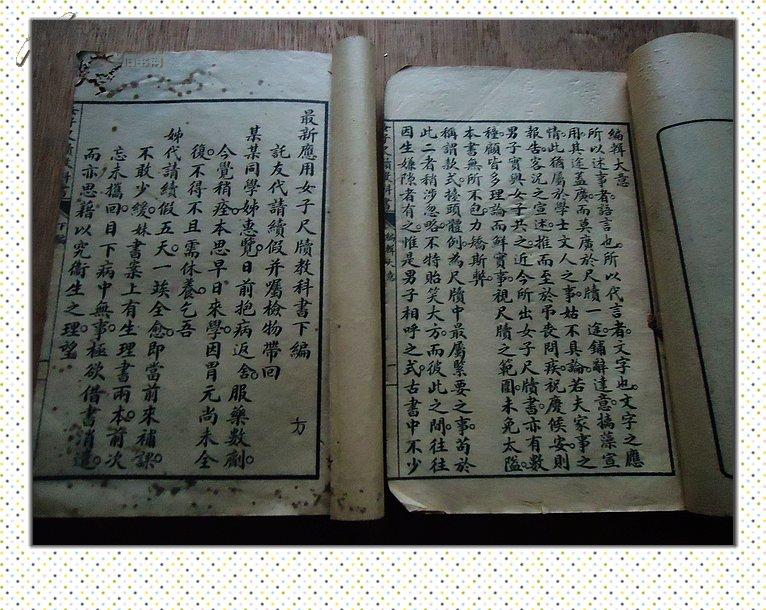 編輯大意
所以述事者語言也。所以代言者。文字也。文字之應
用。其途蓋廣。而莫廣於尺牘一途。鋪辭達意。摛藻宣
情。此猶屬於學士文人之事。姑不具論。若夫家事之
報告。客況之宣述。推而至於弔喪問疾。祝慶候安。則
男子實與女子共之。近今所出女子尺牘書。亦有數
種。顧皆多理論而鮮實事。視尺牘之範圍。未免太隘。
本書無所不包。力矯斯弊。
稱謂款式。擡頭體例。為尺牘中最屬緊要之事。苟於
此二者。稍涉忽略。不特貽笑大方。而彼此之間。往往
因生嫌隙者有之。惟是男子相呼之式。古書中不少
最新應用女子尺牘教科書下編 方
託友代請續假并屬檢物帶回
某某同學姊惠覽。日前抱病返舍。服藥數劑。
今覺稍痊。本思早日來學。因胃元尚未全
復。不得不且需休養。乞吾
姊代請續假五天。一埃全愈。即當前來補課。
不敢少緩。妹書案上有生理書兩本。前次
忘未攜回。日下病中無事。極欲借書消遣。
而亦思藉以究衛生之理。望